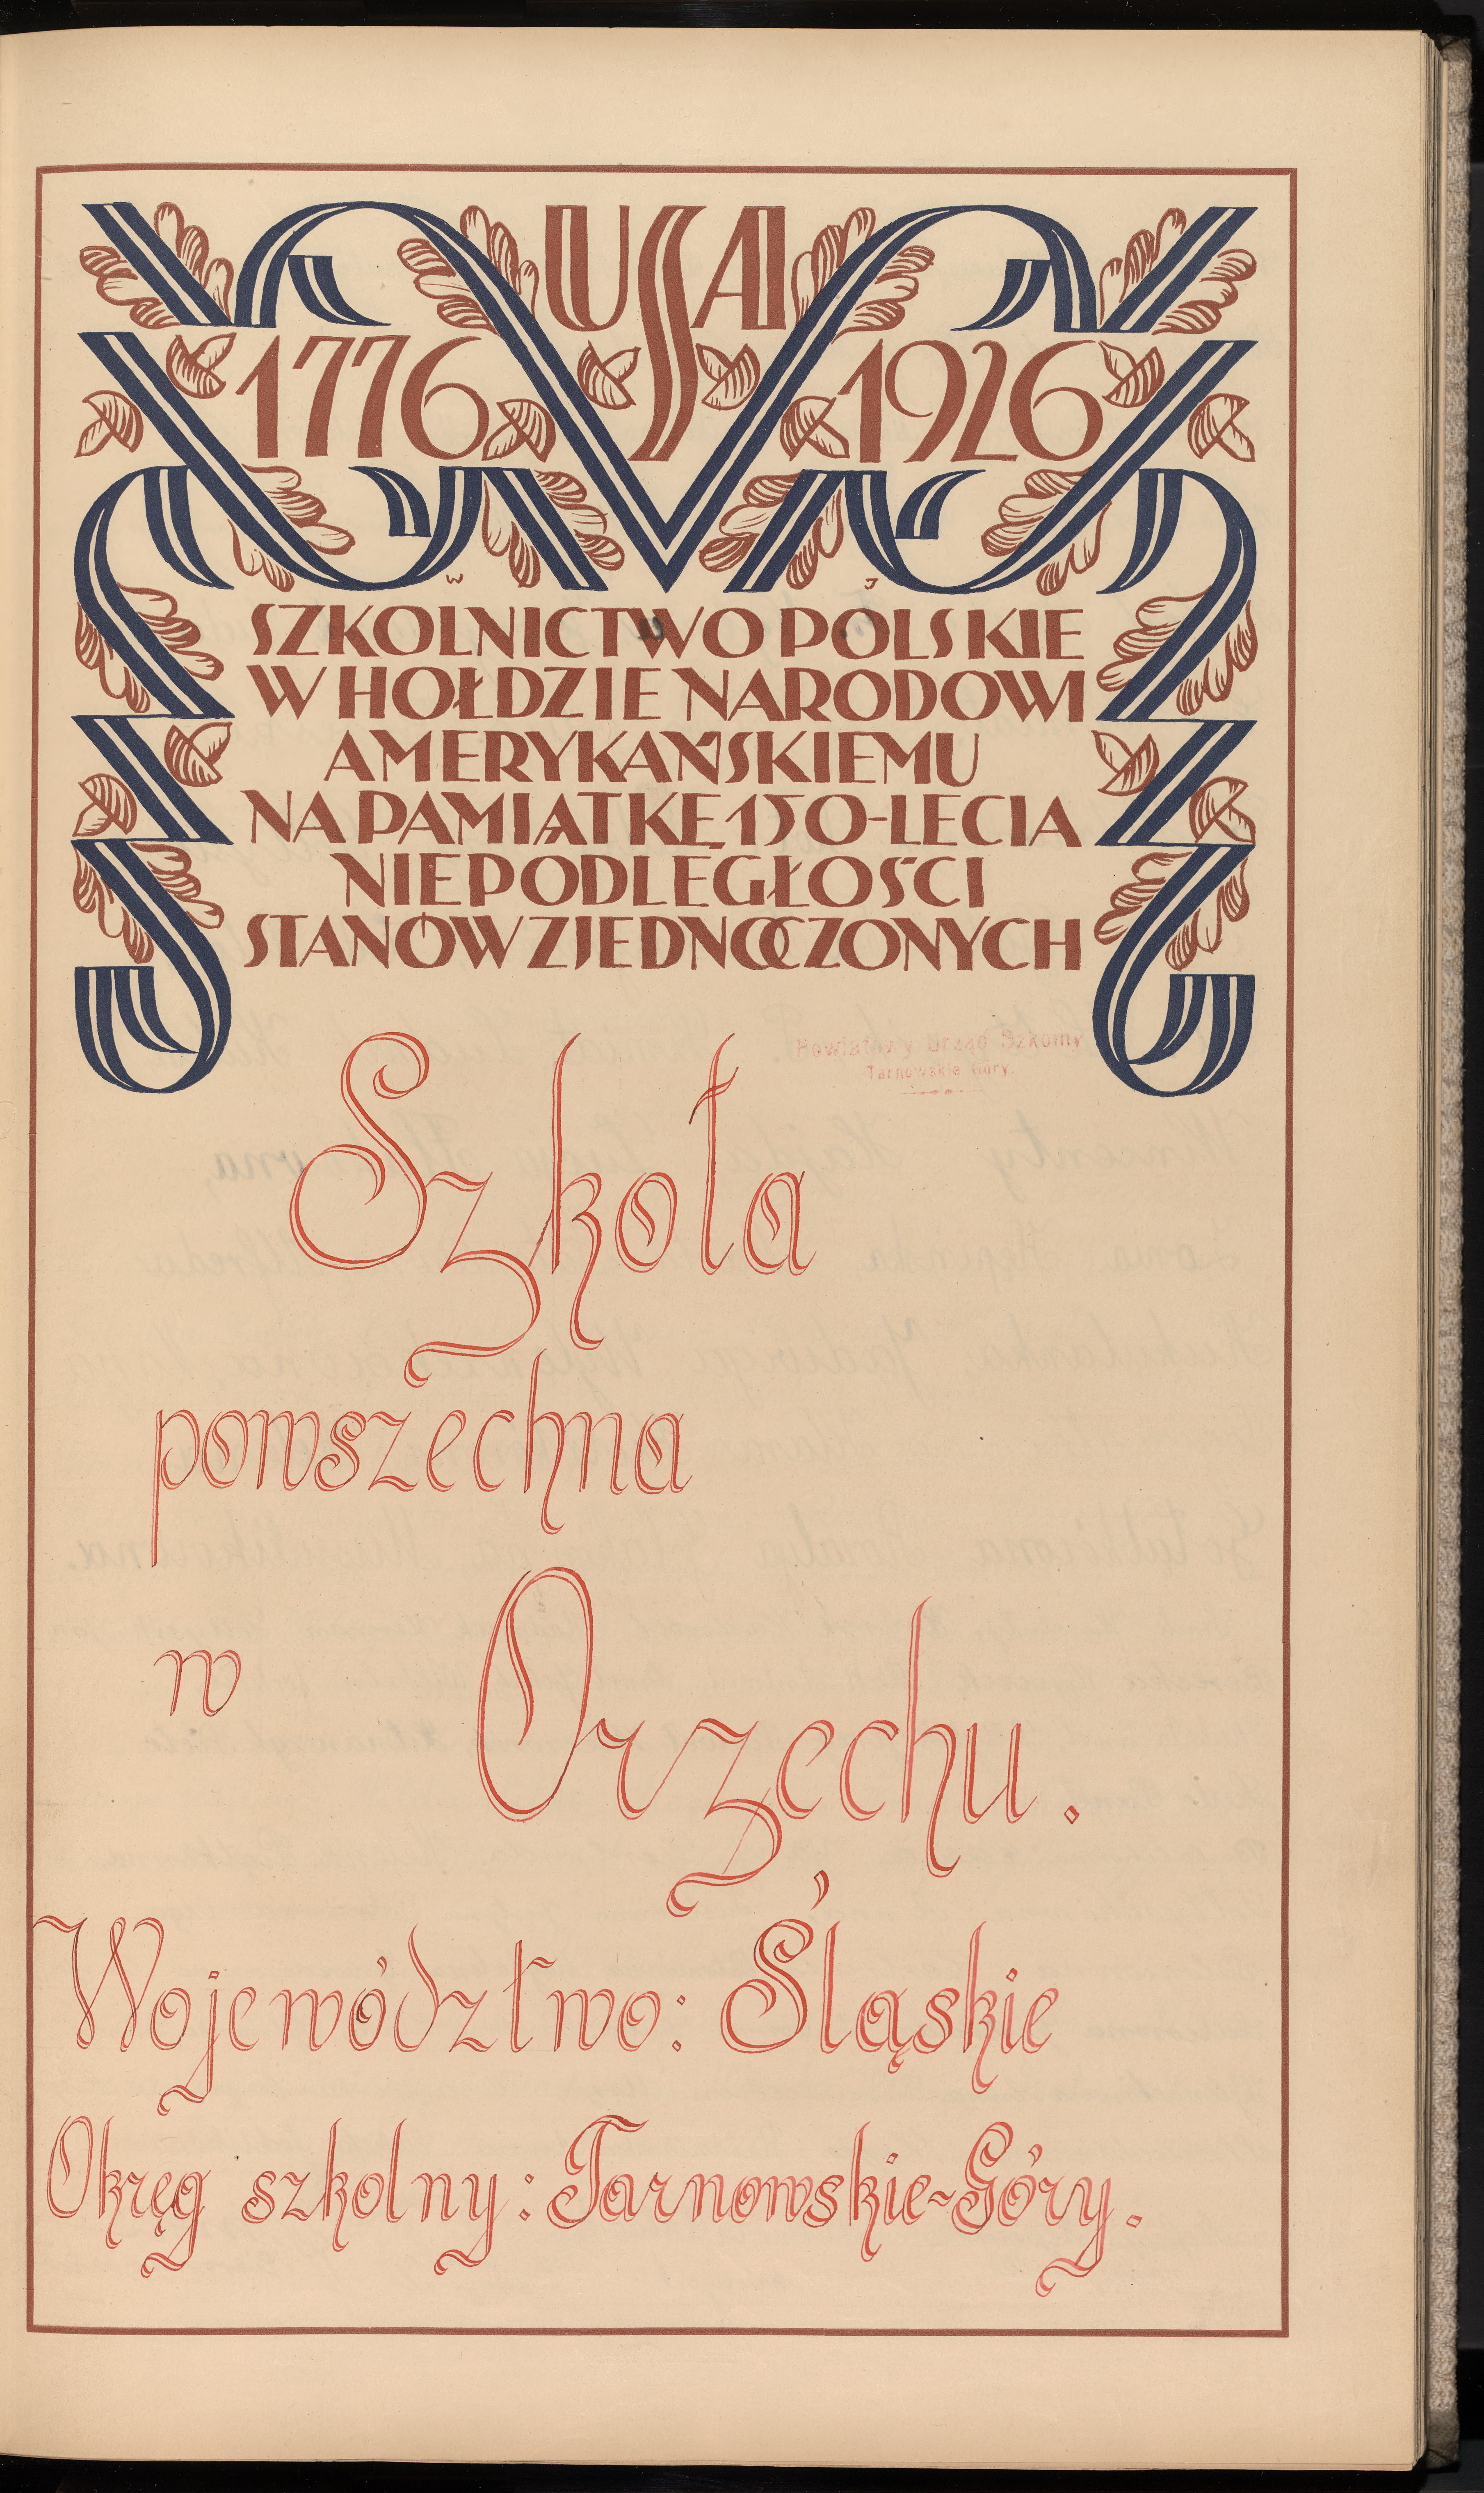 USA
1776 1926
W J
SZKOLNICTWO POLSKIE
W HOŁDZIE NARODOWI
AMERYKAŃSKIEMU
NA PAMIĄTKĘ 150-LECIA
NIEPODLEGŁOŚCI
STANÓW ZJEDNOCZONYCH
Powiatowy Urząd Szkolny
Tarnowskie Góry
Szkoła
powszechna
w Orzechu.
Województwo: Śląskie
Okręg szkolny: Tarnowskie-Góry.